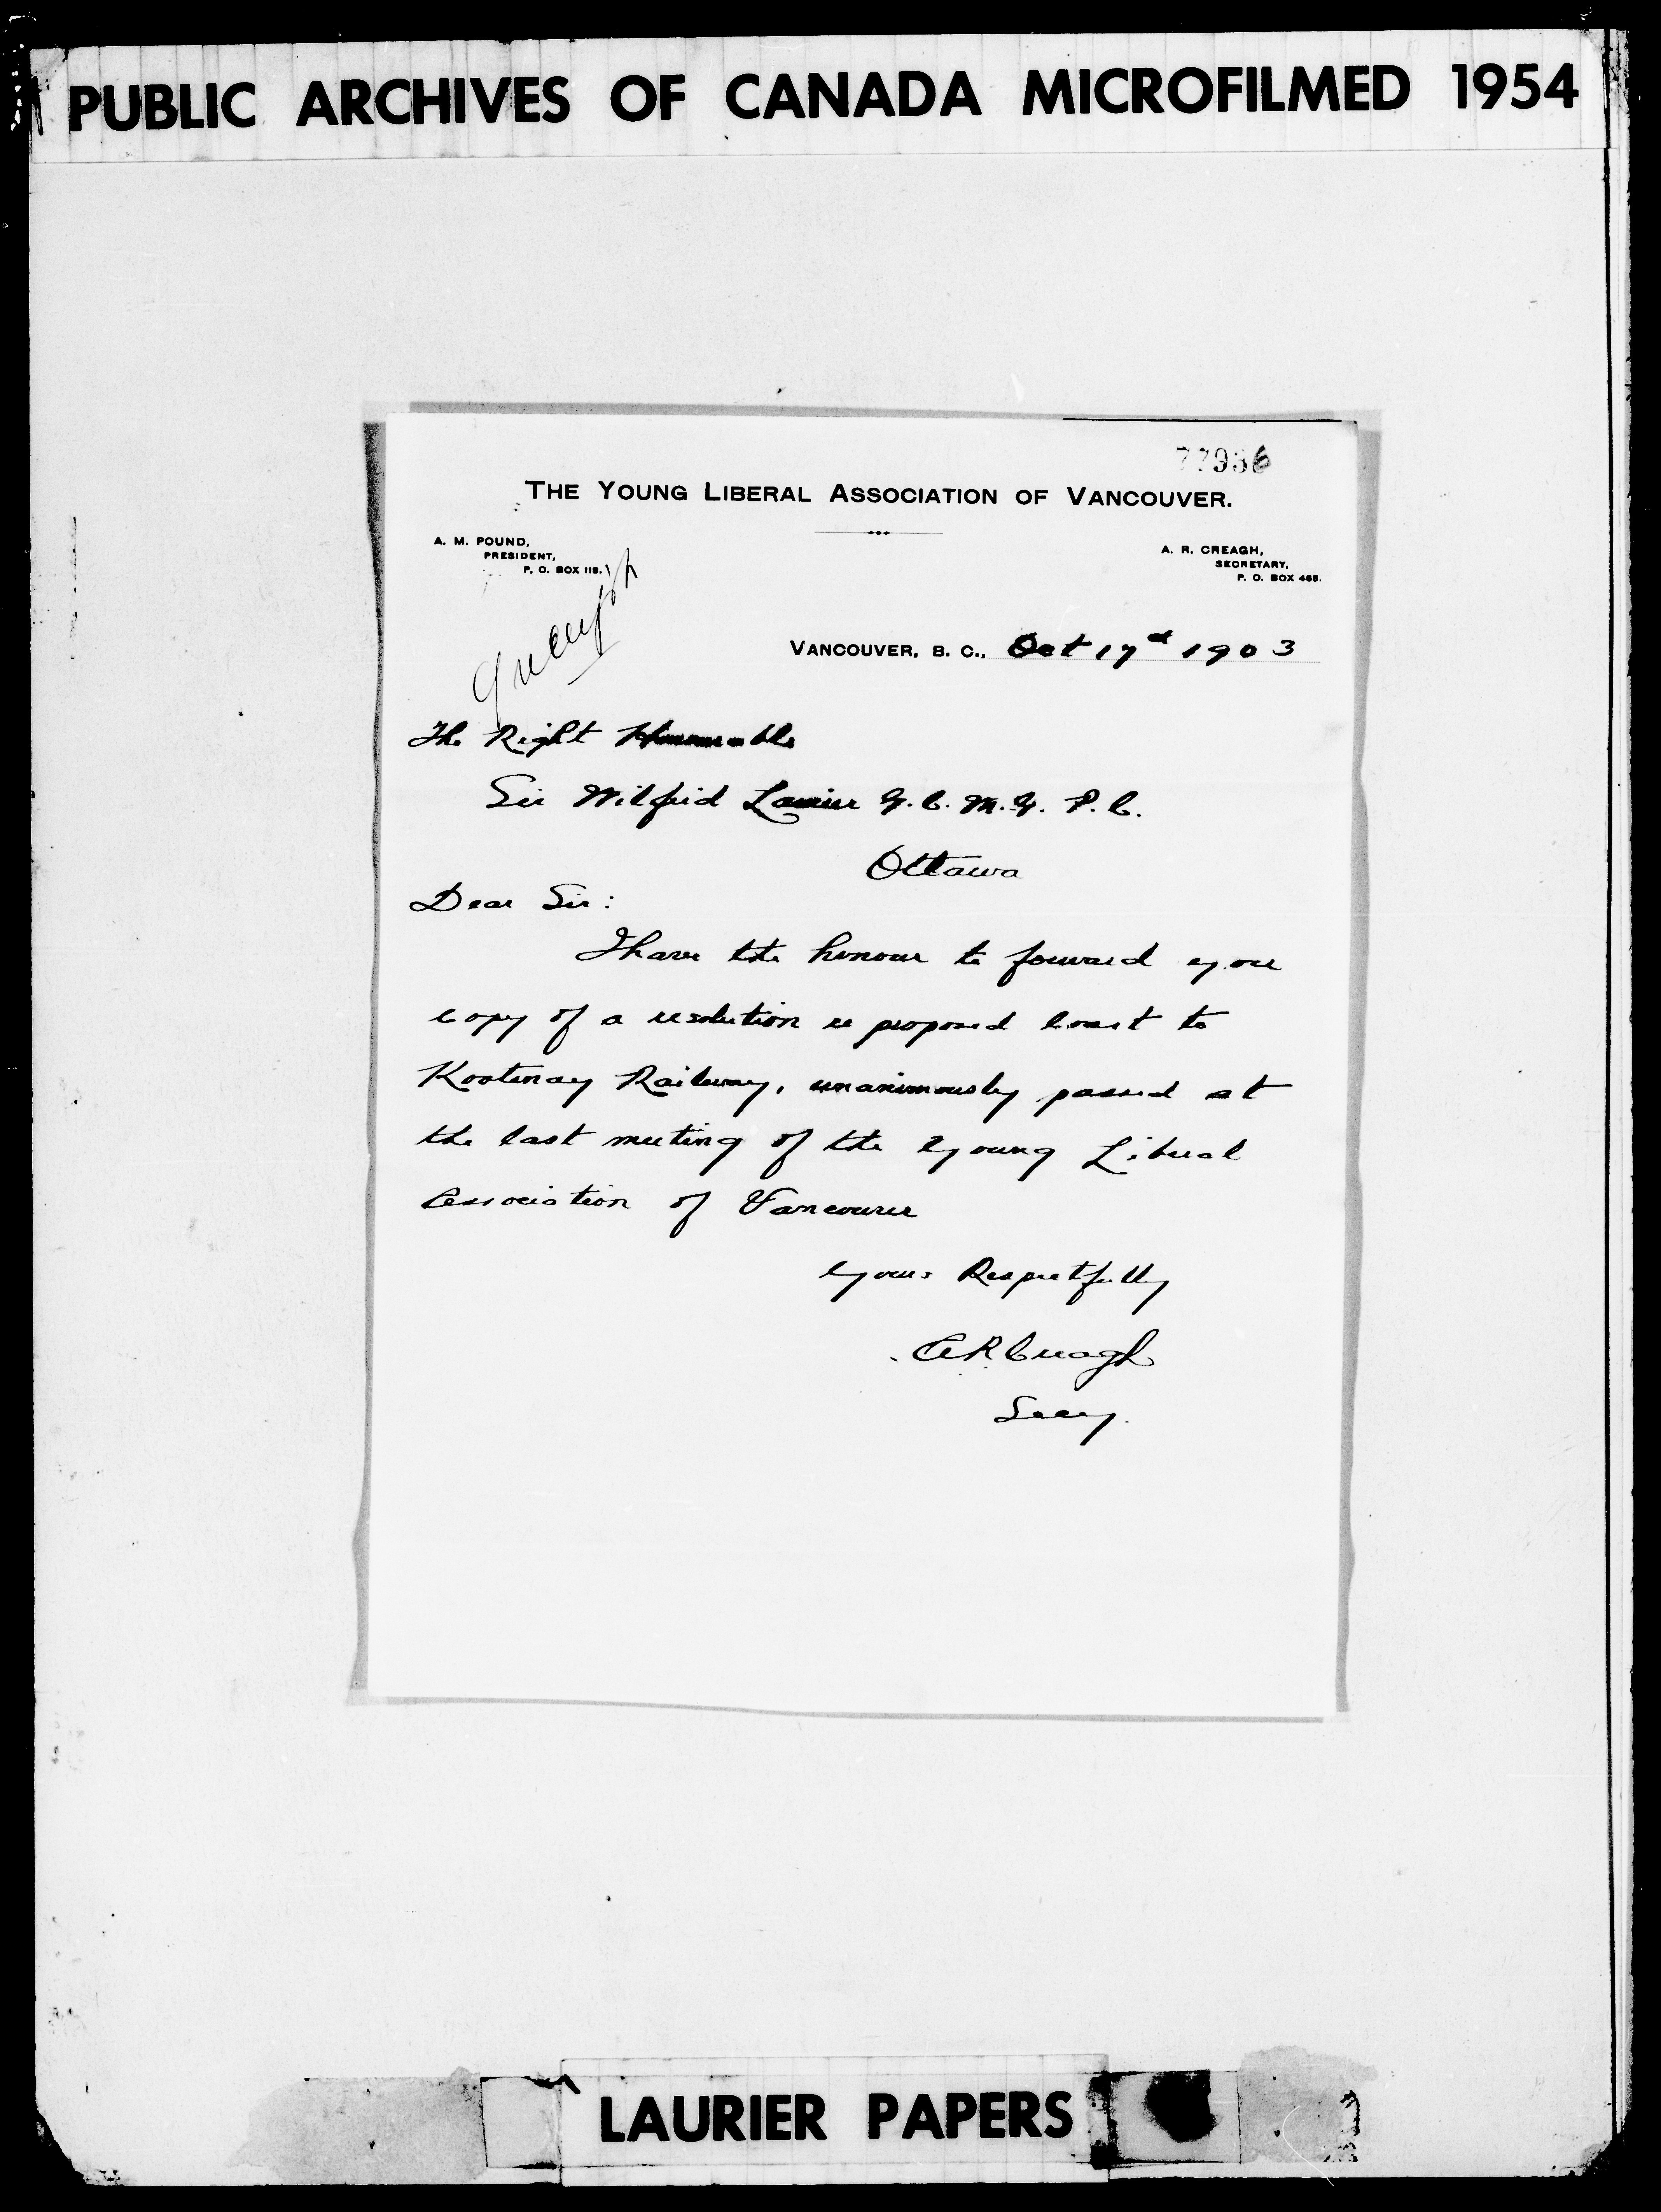 PUBLIC ARCHIVES OF CANADA MICROFILMED 1954
77936
THE YOUNG LIBERAL ASSOCIATION OF VANCOUVER.
A. M. POUND,
PRESIDENT,
P. O. BOX 118.
A. R. CREAGH,
SECRETARY,
P. O. BOX 468.
VANCOUVER, B. C., Oct 17th 1903
The Right Honourable
Sir Wilfrid Laurier G. C. M. G. P. C.
Ottawa
Dear Sir:
I have the honour to forward you
copy of a resolution re proposed Coast to
Kootenay Railway, unanimously passed at
the last meeting of the Young Liberal
Association of Vancouver
Yours Respectfully
A R Creagh
Secy.
LAURIER PAPERS